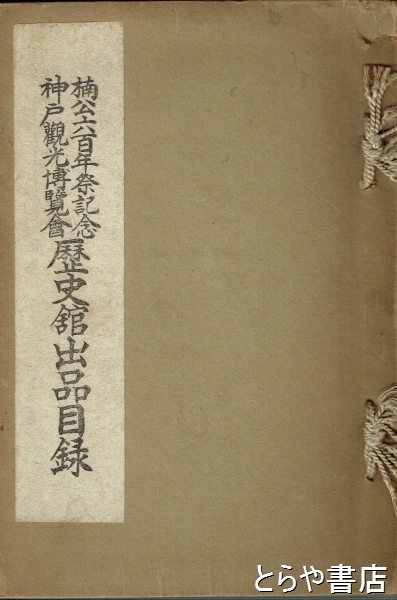 楠公六百年祭記念
神戸觀光博覽會
歴史舘出品目録
とらや書店